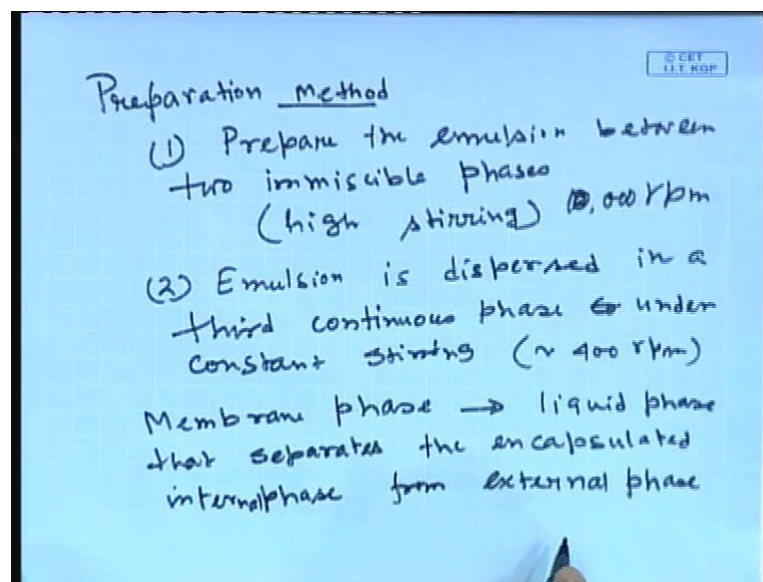 © CET
I.I.T. KGP
Preparation Method
(1) Prepare the emulsion between
two immiscible phases
(high stirring) 10,000 rpm
(2) Emulsion is dispersed in a
third continuous phase under
constant stirring (~ 400 rpm)
Membrane phase → liquid phase
that separates the encapsulated
internal phase from external phase